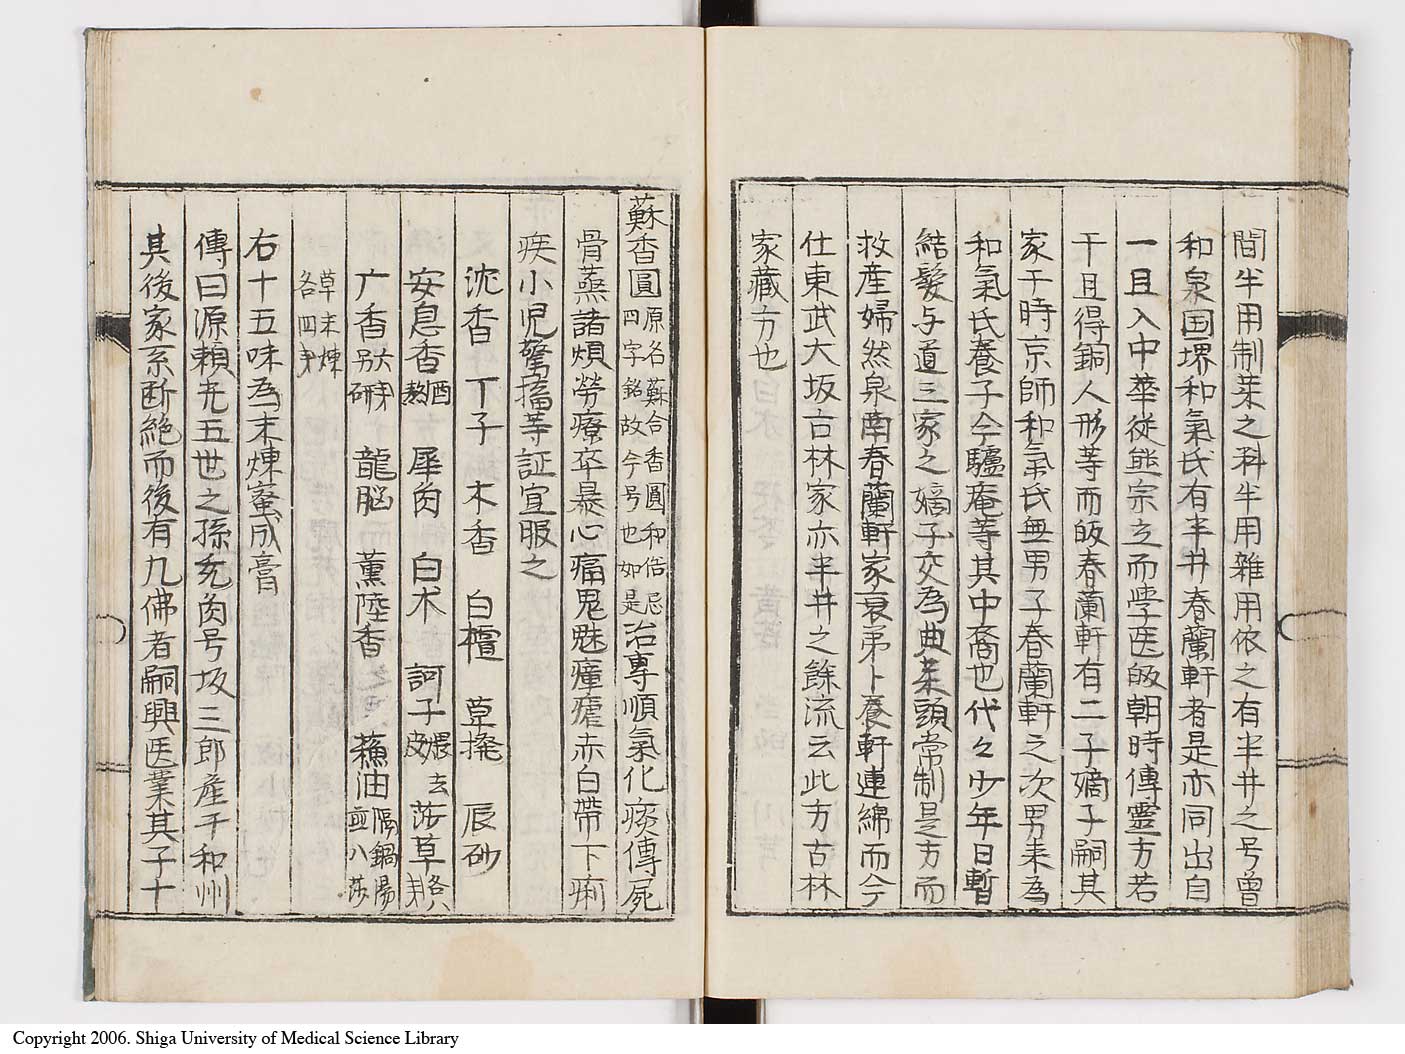 間半用制薬之科半用雜用依之有半井之号曽
和泉国堺和氣氏有半井春蘭軒者是亦同出自
一且入中華従熊宗之而学医皈朝時傳靈方若
干且得銅人形等而皈春蘭軒有二子嫡子嗣其
家于時京師和氣氏無男子春蘭軒之次男来為
和氣氏養子今驢庵等其中裔也代々少年日暫
結髪与道三家之嫡子交為典薬頭常制是方而
救産婦然泉南春蘭軒家衰弟卜養軒連綿而今
仕東武大坂古林家亦半井之餘流云此方古林
家蔵方也
蘓香圓 原名蘓合香圓和俗忌
四字銘故今号也如是 治専順氣化痰傳屍
骨蒸諸煩勞療卒暴心痛鬼魅瘴瘧赤白帯下痢
疾小児驚搐等証宜服之
沈香 丁子 木香 白檀 蓽撥 辰砂
安息香 酒熬 犀角 白朮 訶子 煨去皮 莎草 各八
广香 別研 龍脳 薫陸香 蘓油
草末煉
各四
右十五味為末煉蜜成膏
傳曰源頼光五世之孫 号坂三郎産于和州
其後家系断絶而後有九佛者嗣興医業其子十
Copyright 2006. Shiga University of Medical Science Library